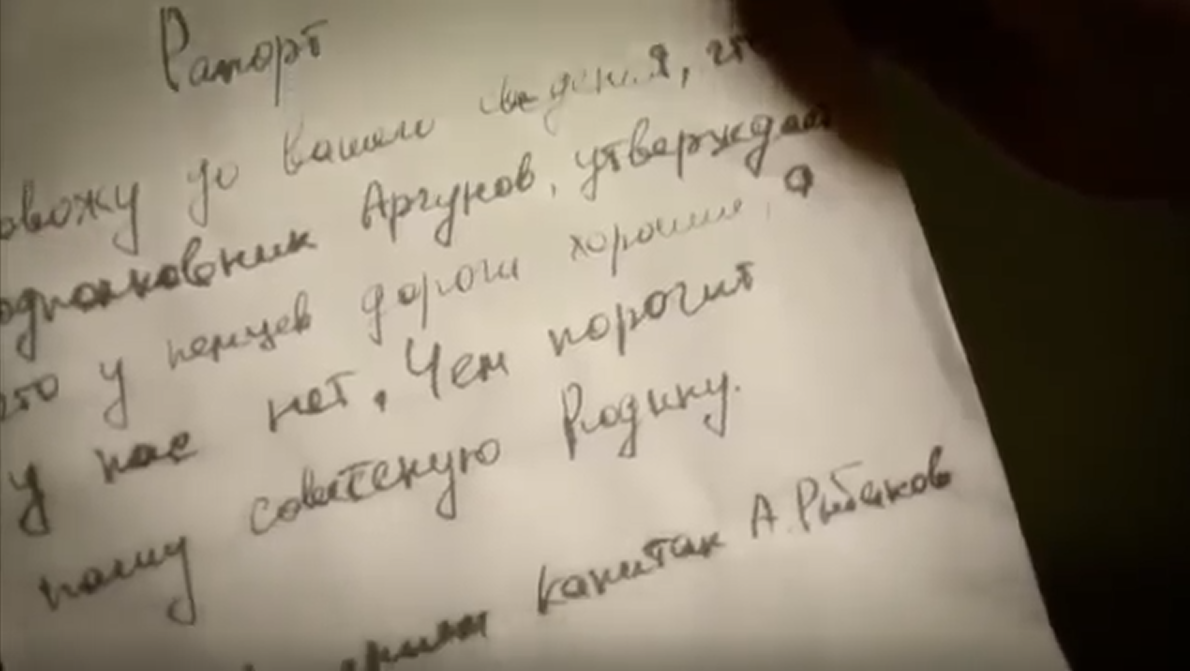 Рапорт
овожу до вашего сведения, чт
одполковник Аргунов, утверждает
что у немцев дороги хорошие, а
у нас нет. Чем порочит
нашу советскую Родину.
капитан А. Рыбаков